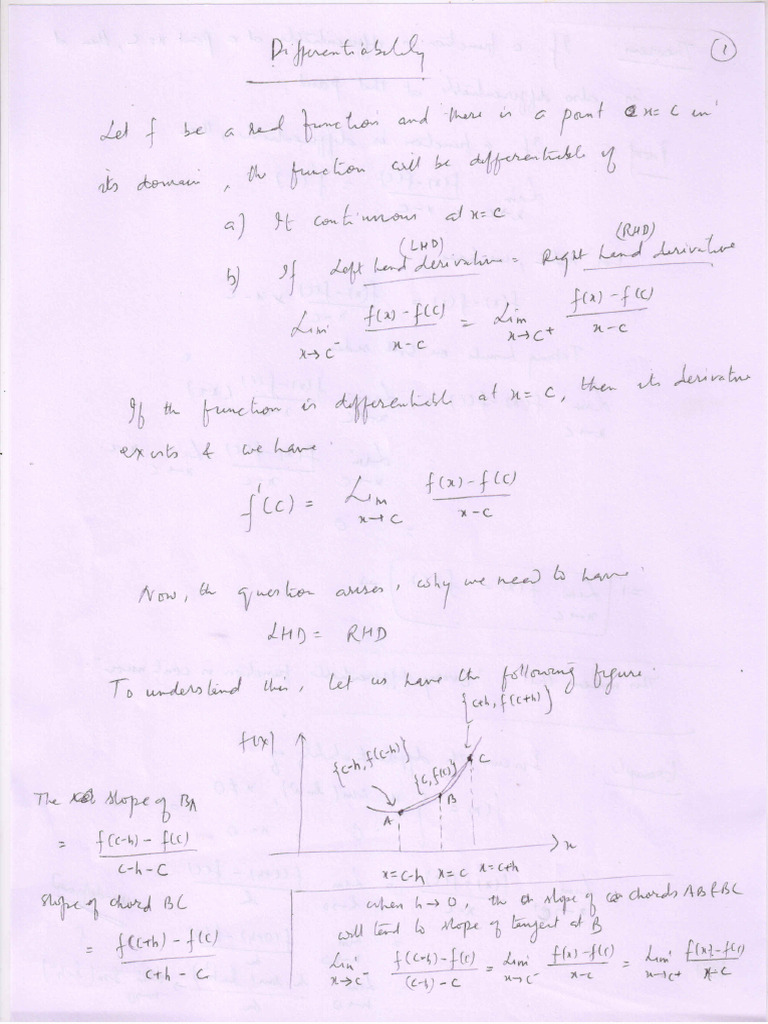 Differentiability
1
Let f be a real function and there is a point x = c in
its domain, the function will be differentiable if
a) It continuous at x = c
(LHD) (RHD)
b) If Left hand derivative = Right hand derivative
Lim x→c⁻ (f(x) – f(c))/(x – c) = Lim x→c⁺ (f(x) – f(c))/(x – c)
If the function is differentiable at x = c, then its derivative
exists & we have
f'(c) = Lim x→c (f(x) – f(c))/(x – c)
Now, the question arises, why we need to have
LHD = RHD
To understand this, let us have the following figure.
{c+h, f(c+h)}
f(x)
{c-h, f(c-h)}
{c, f(c)}
C
B
A
x
x = c-h x = c x = c+h
The slope of BA
= (f(c-h) – f(c))/(c-h-c)
Slope of chord BC
= (f(c+h) – f(c))/(c+h-c)
when h→0, the slope of chords AB & BC
will tend to slope of tangent at B
Lim x→c⁻ (f(c-h) – f(c))/((c-h) – c) = Lim x→c⁻ (f(x) – f(c))/(x – c) = Lim x→c⁺ (f(x) – f(c))/(x – c)